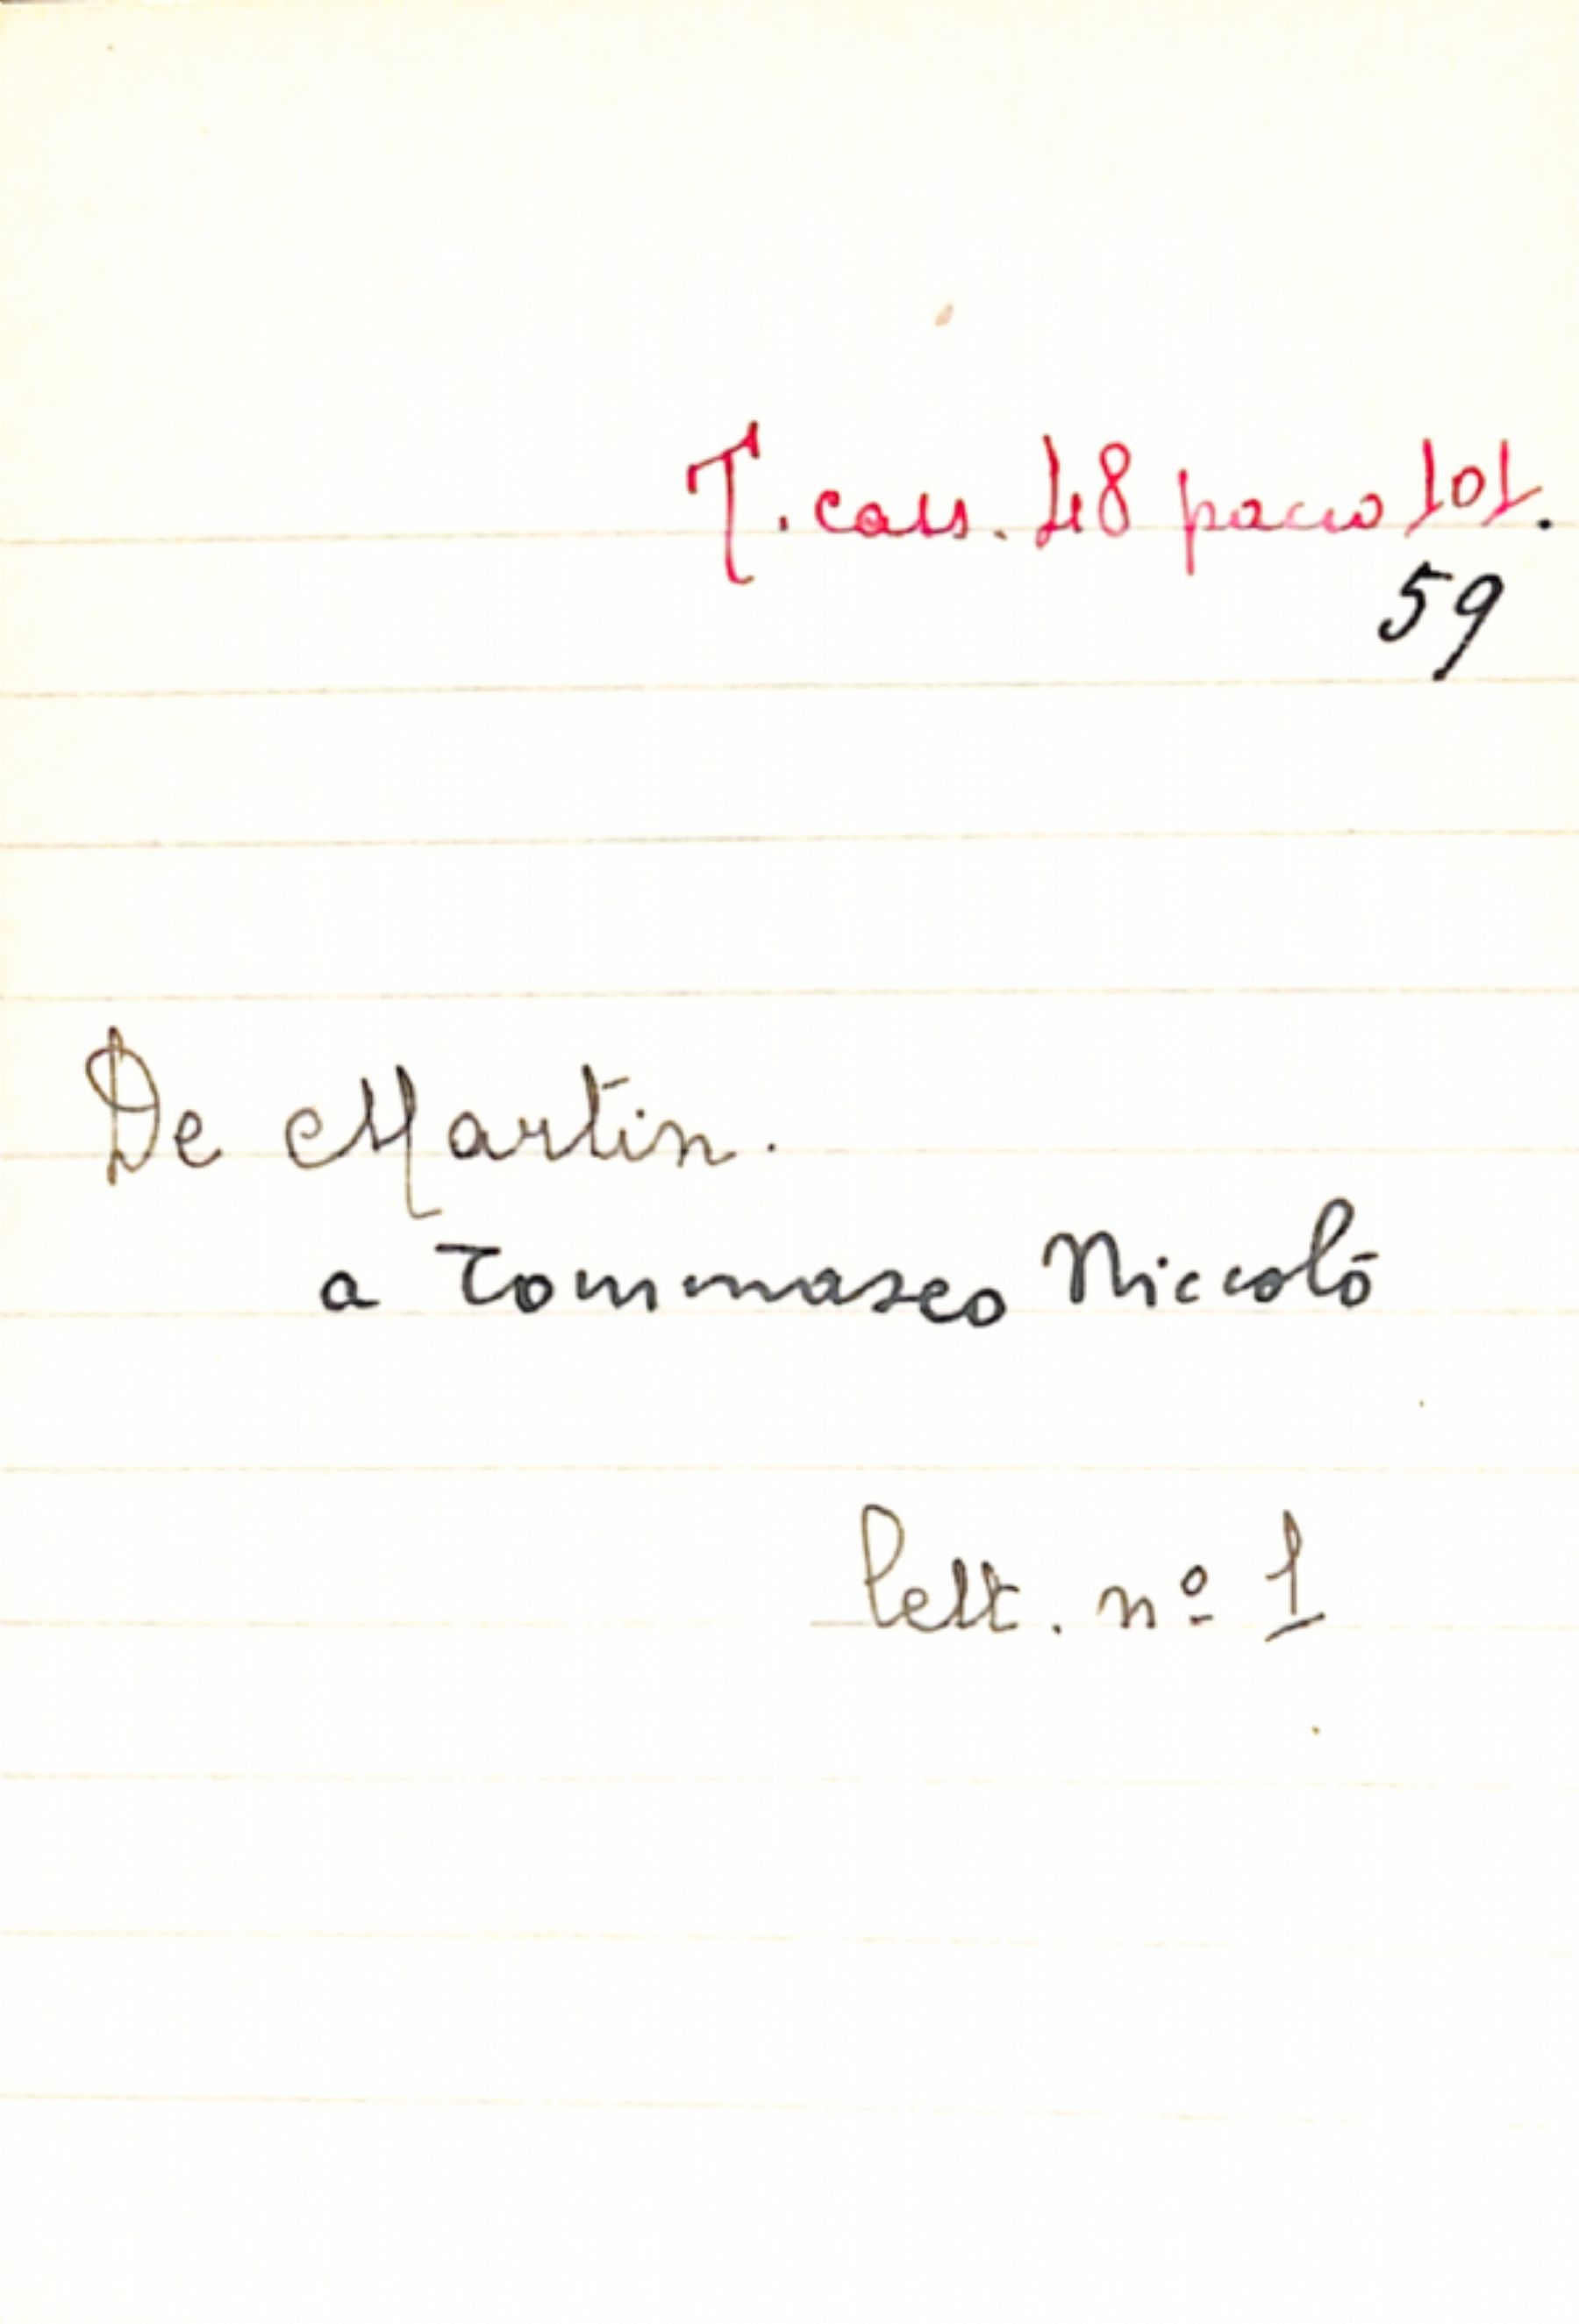 T. cass. 48 pacco 101.
59
De Martin.
a Tommaseo Niccolò
lett. nº 1